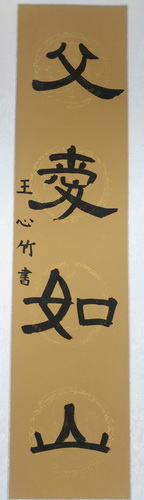 父愛如山
王心竹書